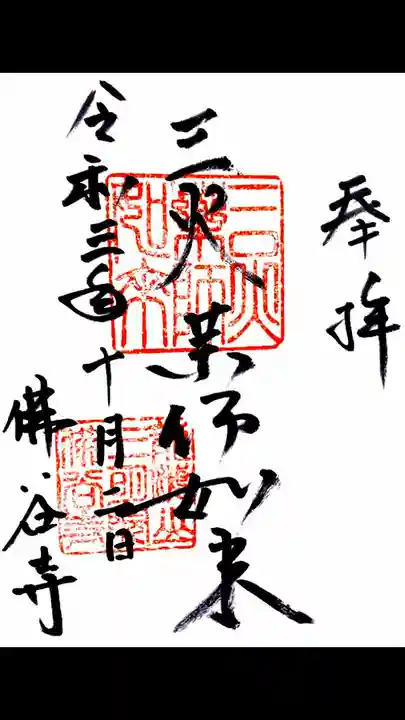 奉拝
三火薬師如来
令和三年十月二日
佛谷寺